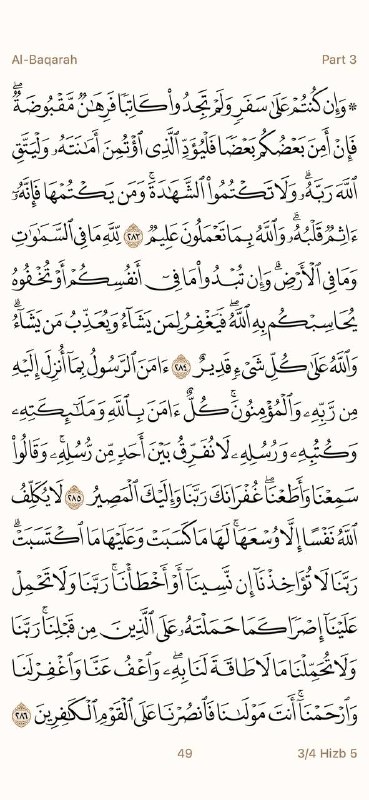 Al-Baqarah
Part 3
۞ وَإِن كُنتُمْ عَلَىٰ سَفَرٍ وَلَمْ تَجِدُوا۟ كَاتِبًا فَرِهَـٰنٌ مَّقْبُوضَةٌ ۖ
فَإِنْ أَمِنَ بَعْضُكُم بَعْضًا فَلْيُؤَدِّ ٱلَّذِى ٱؤْتُمِنَ أَمَـٰنَتَهُۥ وَلْيَتَّقِ
ٱللَّهَ رَبَّهُۥ ۗ وَلَا تَكْتُمُوا۟ ٱلشَّهَـٰدَةَ ۚ وَمَن يَكْتُمْهَا فَإِنَّهُۥٓ
ءَاثِمٌ قَلْبُهُۥ ۗ وَٱللَّهُ بِمَا تَعْمَلُونَ عَلِيمٌ ٢٨٣ لِّلَّهِ مَا فِى ٱلسَّمَـٰوَٰتِ
وَمَا فِى ٱلْأَرْضِ ۗ وَإِن تُبْدُوا۟ مَا فِىٓ أَنفُسِكُمْ أَوْ تُخْفُوهُ
يُحَاسِبْكُم بِهِ ٱللَّهُ ۖ فَيَغْفِرُ لِمَن يَشَآءُ وَيُعَذِّبُ مَن يَشَآءُ ۗ
وَٱللَّهُ عَلَىٰ كُلِّ شَىْءٍ قَدِيرٌ ٢٨٤ ءَامَنَ ٱلرَّسُولُ بِمَآ أُنزِلَ إِلَيْهِ
مِن رَّبِّهِۦ وَٱلْمُؤْمِنُونَ ۚ كُلٌّ ءَامَنَ بِٱللَّهِ وَمَلَـٰٓئِكَتِهِۦ
وَكُتُبِهِۦ وَرُسُلِهِۦ لَا نُفَرِّقُ بَيْنَ أَحَدٍ مِّن رُّسُلِهِۦ ۚ وَقَالُوا۟
سَمِعْنَا وَأَطَعْنَا ۖ غُفْرَانَكَ رَبَّنَا وَإِلَيْكَ ٱلْمَصِيرُ ٢٨٥ لَا يُكَلِّفُ
ٱللَّهُ نَفْسًا إِلَّا وُسْعَهَا ۚ لَهَا مَا كَسَبَتْ وَعَلَيْهَا مَا ٱكْتَسَبَتْ ۗ
رَبَّنَا لَا تُؤَاخِذْنَآ إِن نَّسِينَآ أَوْ أَخْطَأْنَا ۚ رَبَّنَا وَلَا تَحْمِلْ
عَلَيْنَآ إِصْرًا كَمَا حَمَلْتَهُۥ عَلَى ٱلَّذِينَ مِن قَبْلِنَا ۚ رَبَّنَا
وَلَا تُحَمِّلْنَا مَا لَا طَاقَةَ لَنَا بِهِۦ ۖ وَٱعْفُ عَنَّا وَٱغْفِرْ لَنَا
وَٱرْحَمْنَآ ۚ أَنتَ مَوْلَىٰنَا فَٱنصُرْنَا عَلَى ٱلْقَوْمِ ٱلْكَـٰفِرِينَ ٢٨٦
49
3/4 Hizb 5